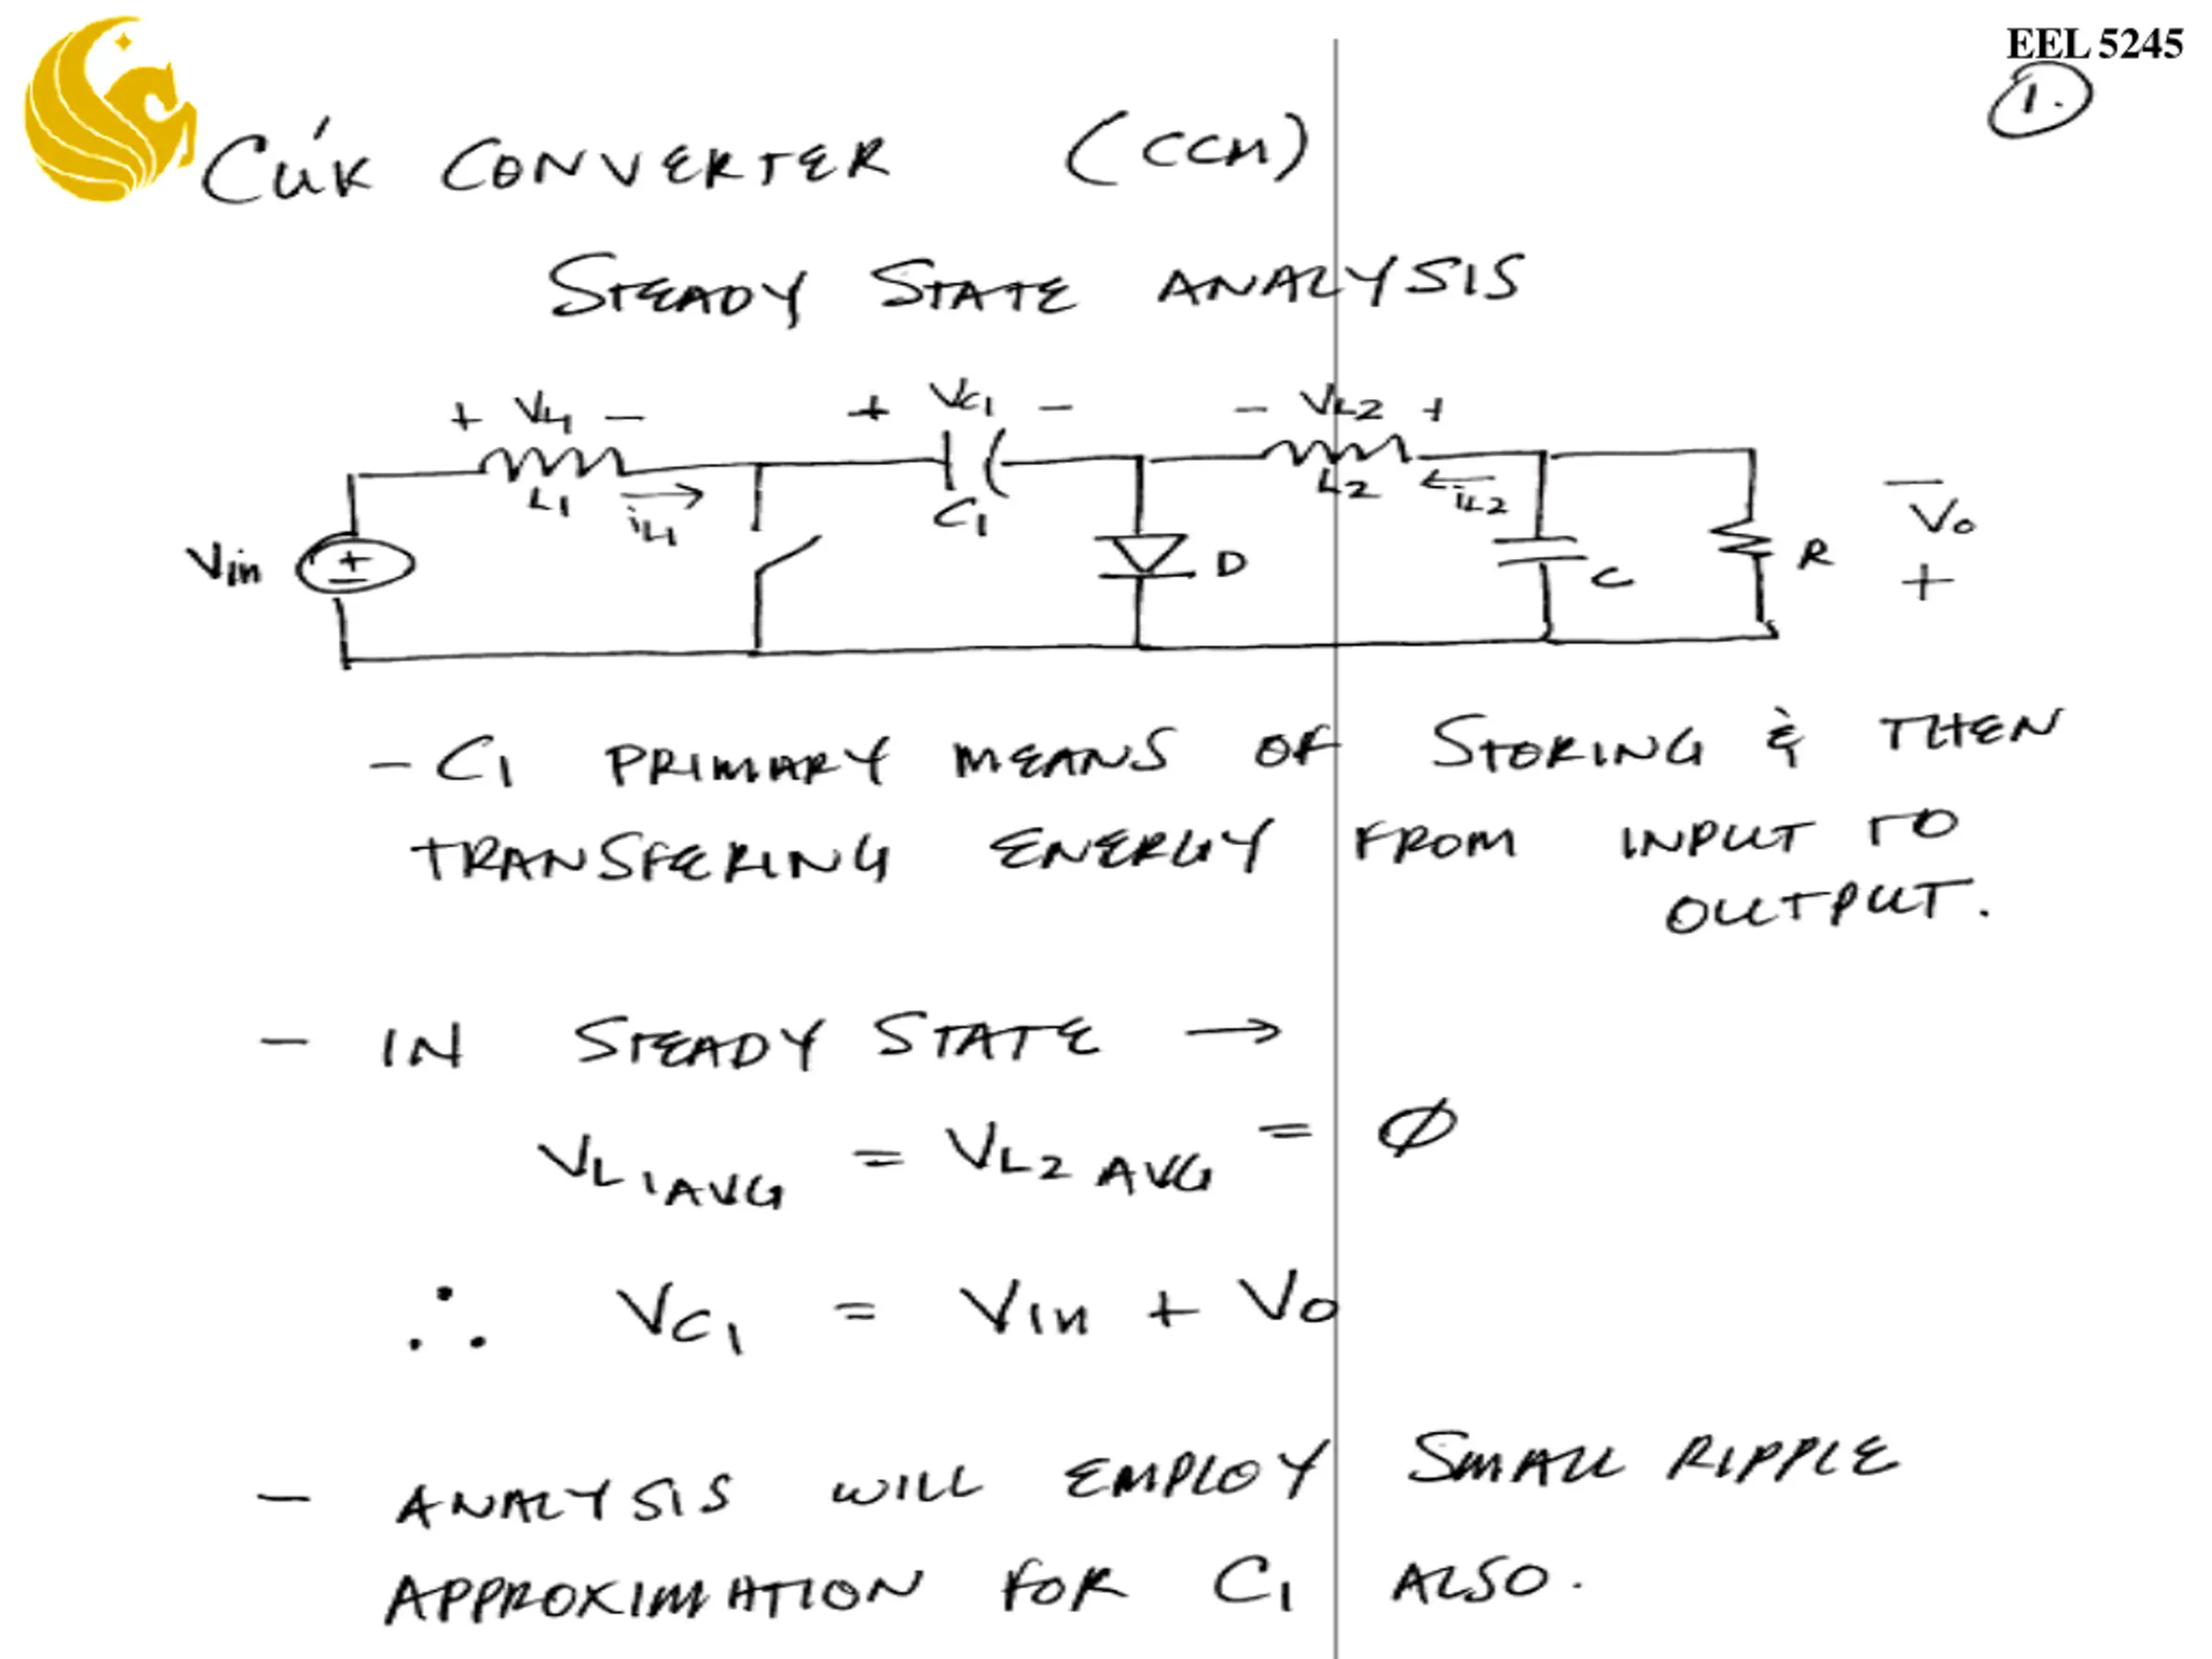 EEL 5245
1.
Cúk CONVERTER (CCM)
STEADY STATE ANALYSIS
+ VL1 - + VC1 - - VL2 +
L1 iL1 C1 L2 iL2
Vin + - D C R - Vo +
- C1 PRIMARY MEANS OF STORING & THEN
TRANSFERING ENERGY FROM INPUT TO
OUTPUT.
- IN STEADY STATE →
VL1AVG = VL2 AVG = Ø
∴ VC1 = Vin + Vo
- ANALYSIS WILL EMPLOY SMALL RIPPLE
APPROXIMATION FOR C1 ALSO.